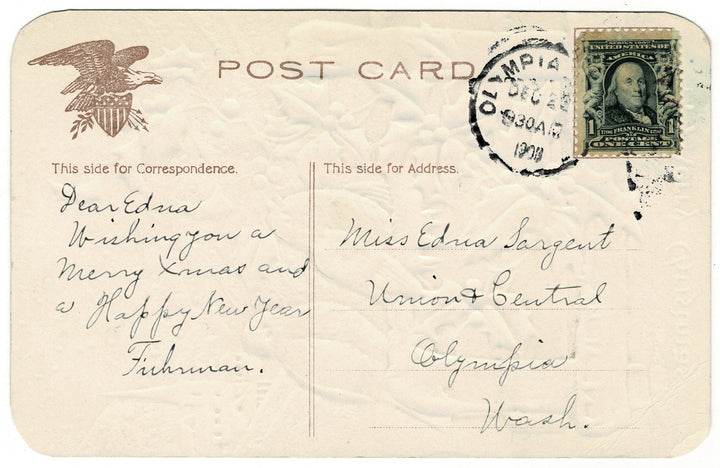 POST CARD
OLYMPIA
DEC
830AM
SERIES 1902
UNITED STATES OF
AMERICA
1 FRANKLIN 1
POSTAGE
ONE CENT
This side for Correspondence.
Dear Edna
Wishing you a
Merry Xmas and
a Happy New Year
Fuhrman.
This side for Address.
Miss Edna Sargent
Union & Central
Olympia
Wash.